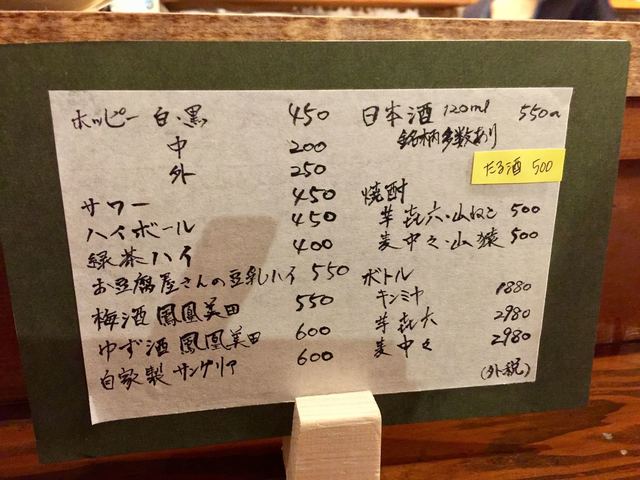 ホッピー 白・黒 450
中 200
外 250
サワー 450
ハイボール 450
緑茶ハイ 400
お豆腐屋さんの豆乳ハイ 550
梅酒 鳳凰美田 550
ゆず酒 鳳凰美田 600
自家製 サングリア 600
日本酒 120ml 550~
銘柄多数あり
たる酒 500
焼酎
芋 㐂六・山ねこ 500
麦 中々・山猿 500
ボトル
キンミヤ 1880
芋 㐂六 2980
麦 中々 2980
(外税)